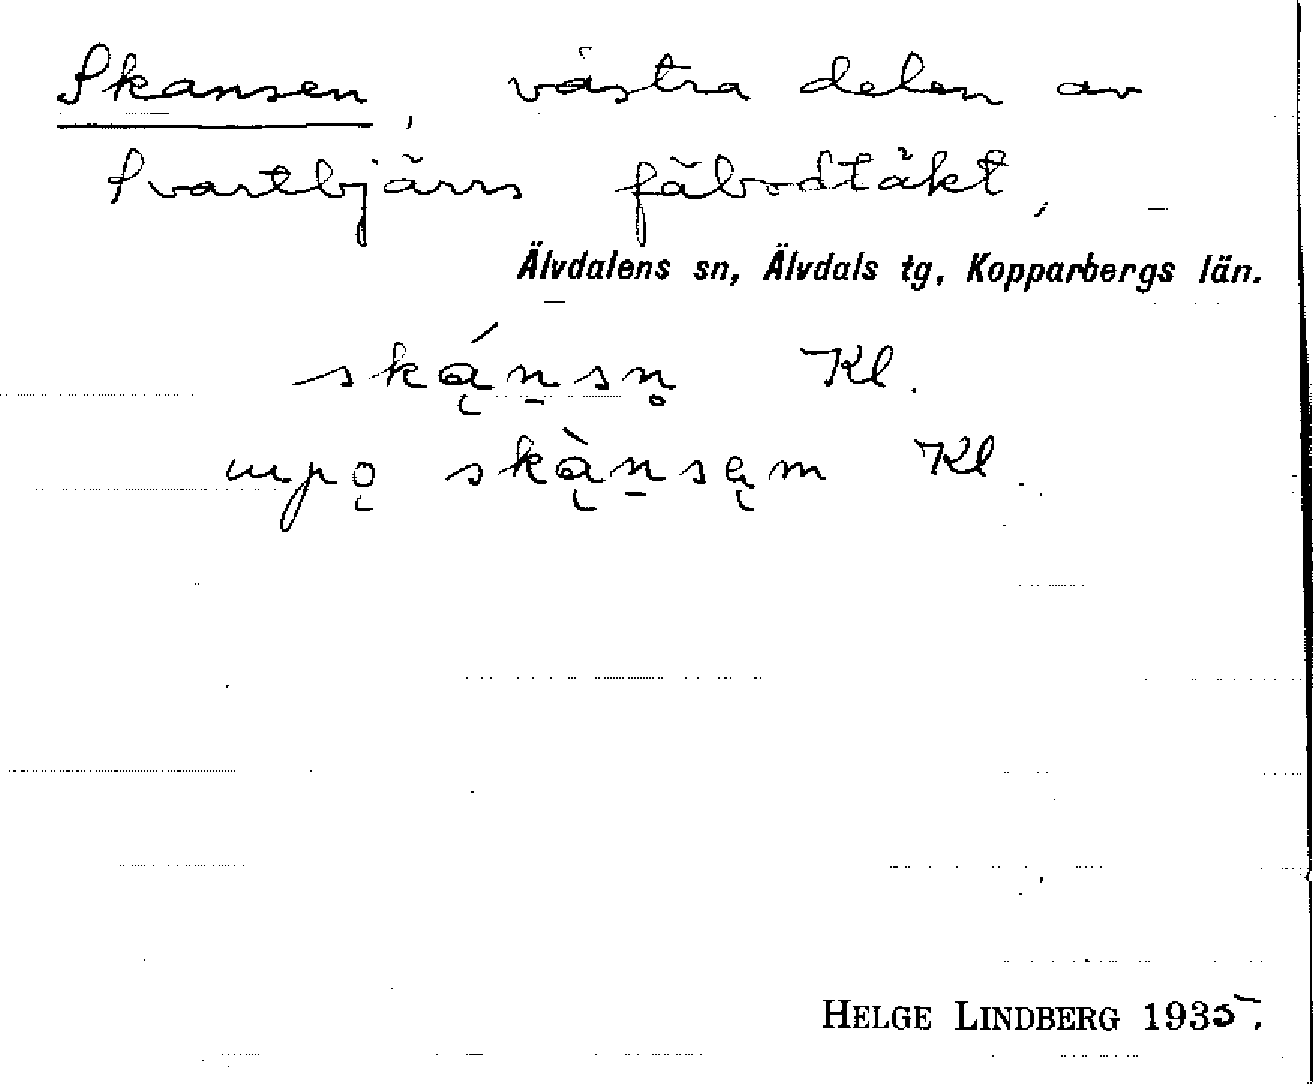 Skansen, västra delen av
Svartbjärs fäbodtäkt,
Älvdalens sn, Älvdals tg, Kopparbergs län.
ską́n̠sn̥ Kl.
upǫ ską̀n̠sąm Kl.
HELGE LINDBERG 1935.